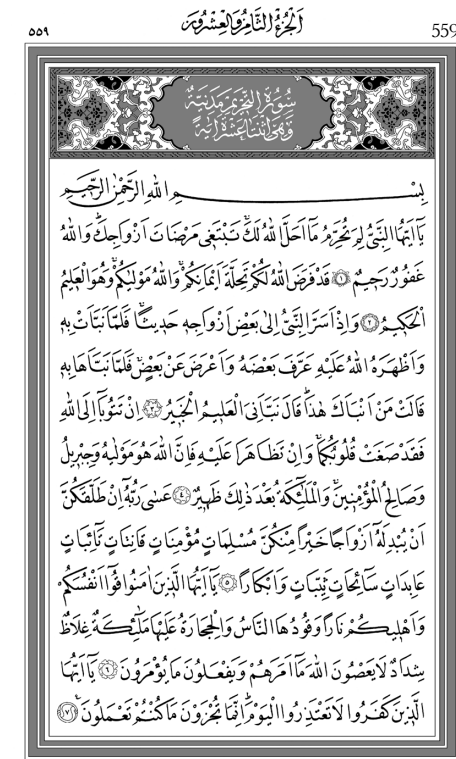 ٥٥٩ اَلْجُزْءُ الثَّامِنُ وَالْعِشْرُونَ 559
سُورَةُ التَّحْرِيمِ مَدَنِيَّةٌ
وَهِيَ اثْنَتَا عَشْرَةَ اٰيَةً
بِسْمِ اللهِ الرَّحْمٰنِ الرَّحِيمِ
يَٓا اَيُّهَا النَّبِيُّ لِمَ تُحَرِّمُ مَٓا اَحَلَّ اللهُ لَكَۚ تَبْتَغِى مَرْضَاتَ اَزْوَاجِكَۜ وَاللهُ
غَفُورٌ رَحِيمٌ ﴿١﴾ قَدْ فَرَضَ اللهُ لَكُمْ تَحِلَّةَ اَيْمَانِكُمْۚ وَاللهُ مَوْلٰيكُمْۚ وَهُوَ الْعَلِيمُ
الْحَكِيمُ ﴿٢﴾ وَاِذْ اَسَرَّ النَّبِيُّ اِلٰى بَعْضِ اَزْوَاجِهِ حَدِيثًاۚ فَلَمَّا نَبَّاَتْ بِهِ
وَاَظْهَرَهُ اللهُ عَلَيْهِ عَرَّفَ بَعْضَهُ وَاَعْرَضَ عَنْ بَعْضٍۚ فَلَمَّا نَبَّاَهَا بِهِ
قَالَتْ مَنْ اَنْبَاَكَ هٰذَاۜ قَالَ نَبَّاَنِىَ الْعَلِيمُ الْخَبِيرُ ﴿٣﴾ اِنْ تَتُوبَٓا اِلَى اللهِ
فَقَدْ صَغَتْ قُلُوبُكُمَاۚ وَاِنْ تَظَاهَرَا عَلَيْهِ فَاِنَّ اللهَ هُوَ مَوْلٰيهُ وَجِبْرِيلُ
وَصَالِحُ الْمُؤْمِنِينَۚ وَالْمَلٰٓئِكَةُ بَعْدَ ذٰلِكَ ظَهِيرٌ ﴿٤﴾ عَسٰى رَبُّهُٓ اِنْ طَلَّقَكُنَّ
اَنْ يُبْدِلَهُٓ اَزْوَاجًا خَيْرًا مِنْكُنَّ مُسْلِمَاتٍ مُؤْمِنَاتٍ قَانِتَاتٍ تَٓائِبَاتٍ
عَابِدَاتٍ سَٓائِحَاتٍ ثَيِّبَاتٍ وَاَبْكَارًا ﴿٥﴾ يَٓا اَيُّهَا الَّذِينَ اٰمَنُوا قُٓوا اَنْفُسَكُمْ
وَاَهْلِيكُمْ نَارًا وَقُودُهَا النَّاسُ وَالْحِجَارَةُ عَلَيْهَا مَلٰٓئِكَةٌ غِلَاظٌ
شِدَادٌ لَا يَعْصُونَ اللهَ مَٓا اَمَرَهُمْ وَيَفْعَلُونَ مَا يُؤْمَرُونَ ﴿٦﴾ يَٓا اَيُّهَا
الَّذِينَ كَفَرُوا لَا تَعْتَذِرُوا الْيَوْمَۜ اِنَّمَا تُجْزَوْنَ مَا كُنْتُمْ تَعْمَلُونَ۟ ﴿٧﴾